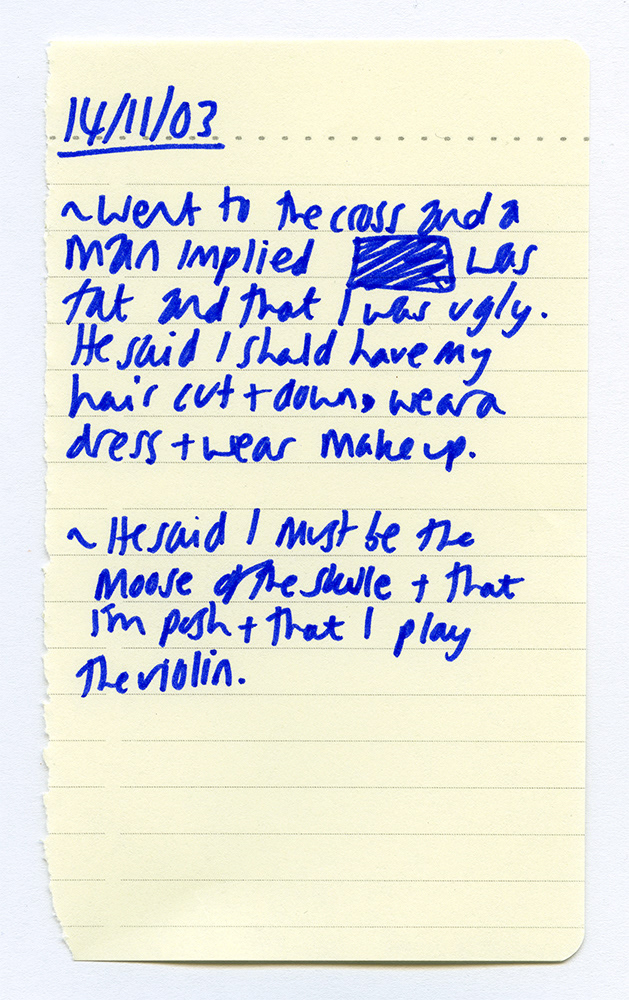 14/11/03
~ Went to the cross and a
man implied was
fat and that I was ugly.
He said I should have my
hair cut + down, wear a
dress + wear make up.
~ He said I must be the
Moose of the skule + that
I'm posh + that I play
the violin.